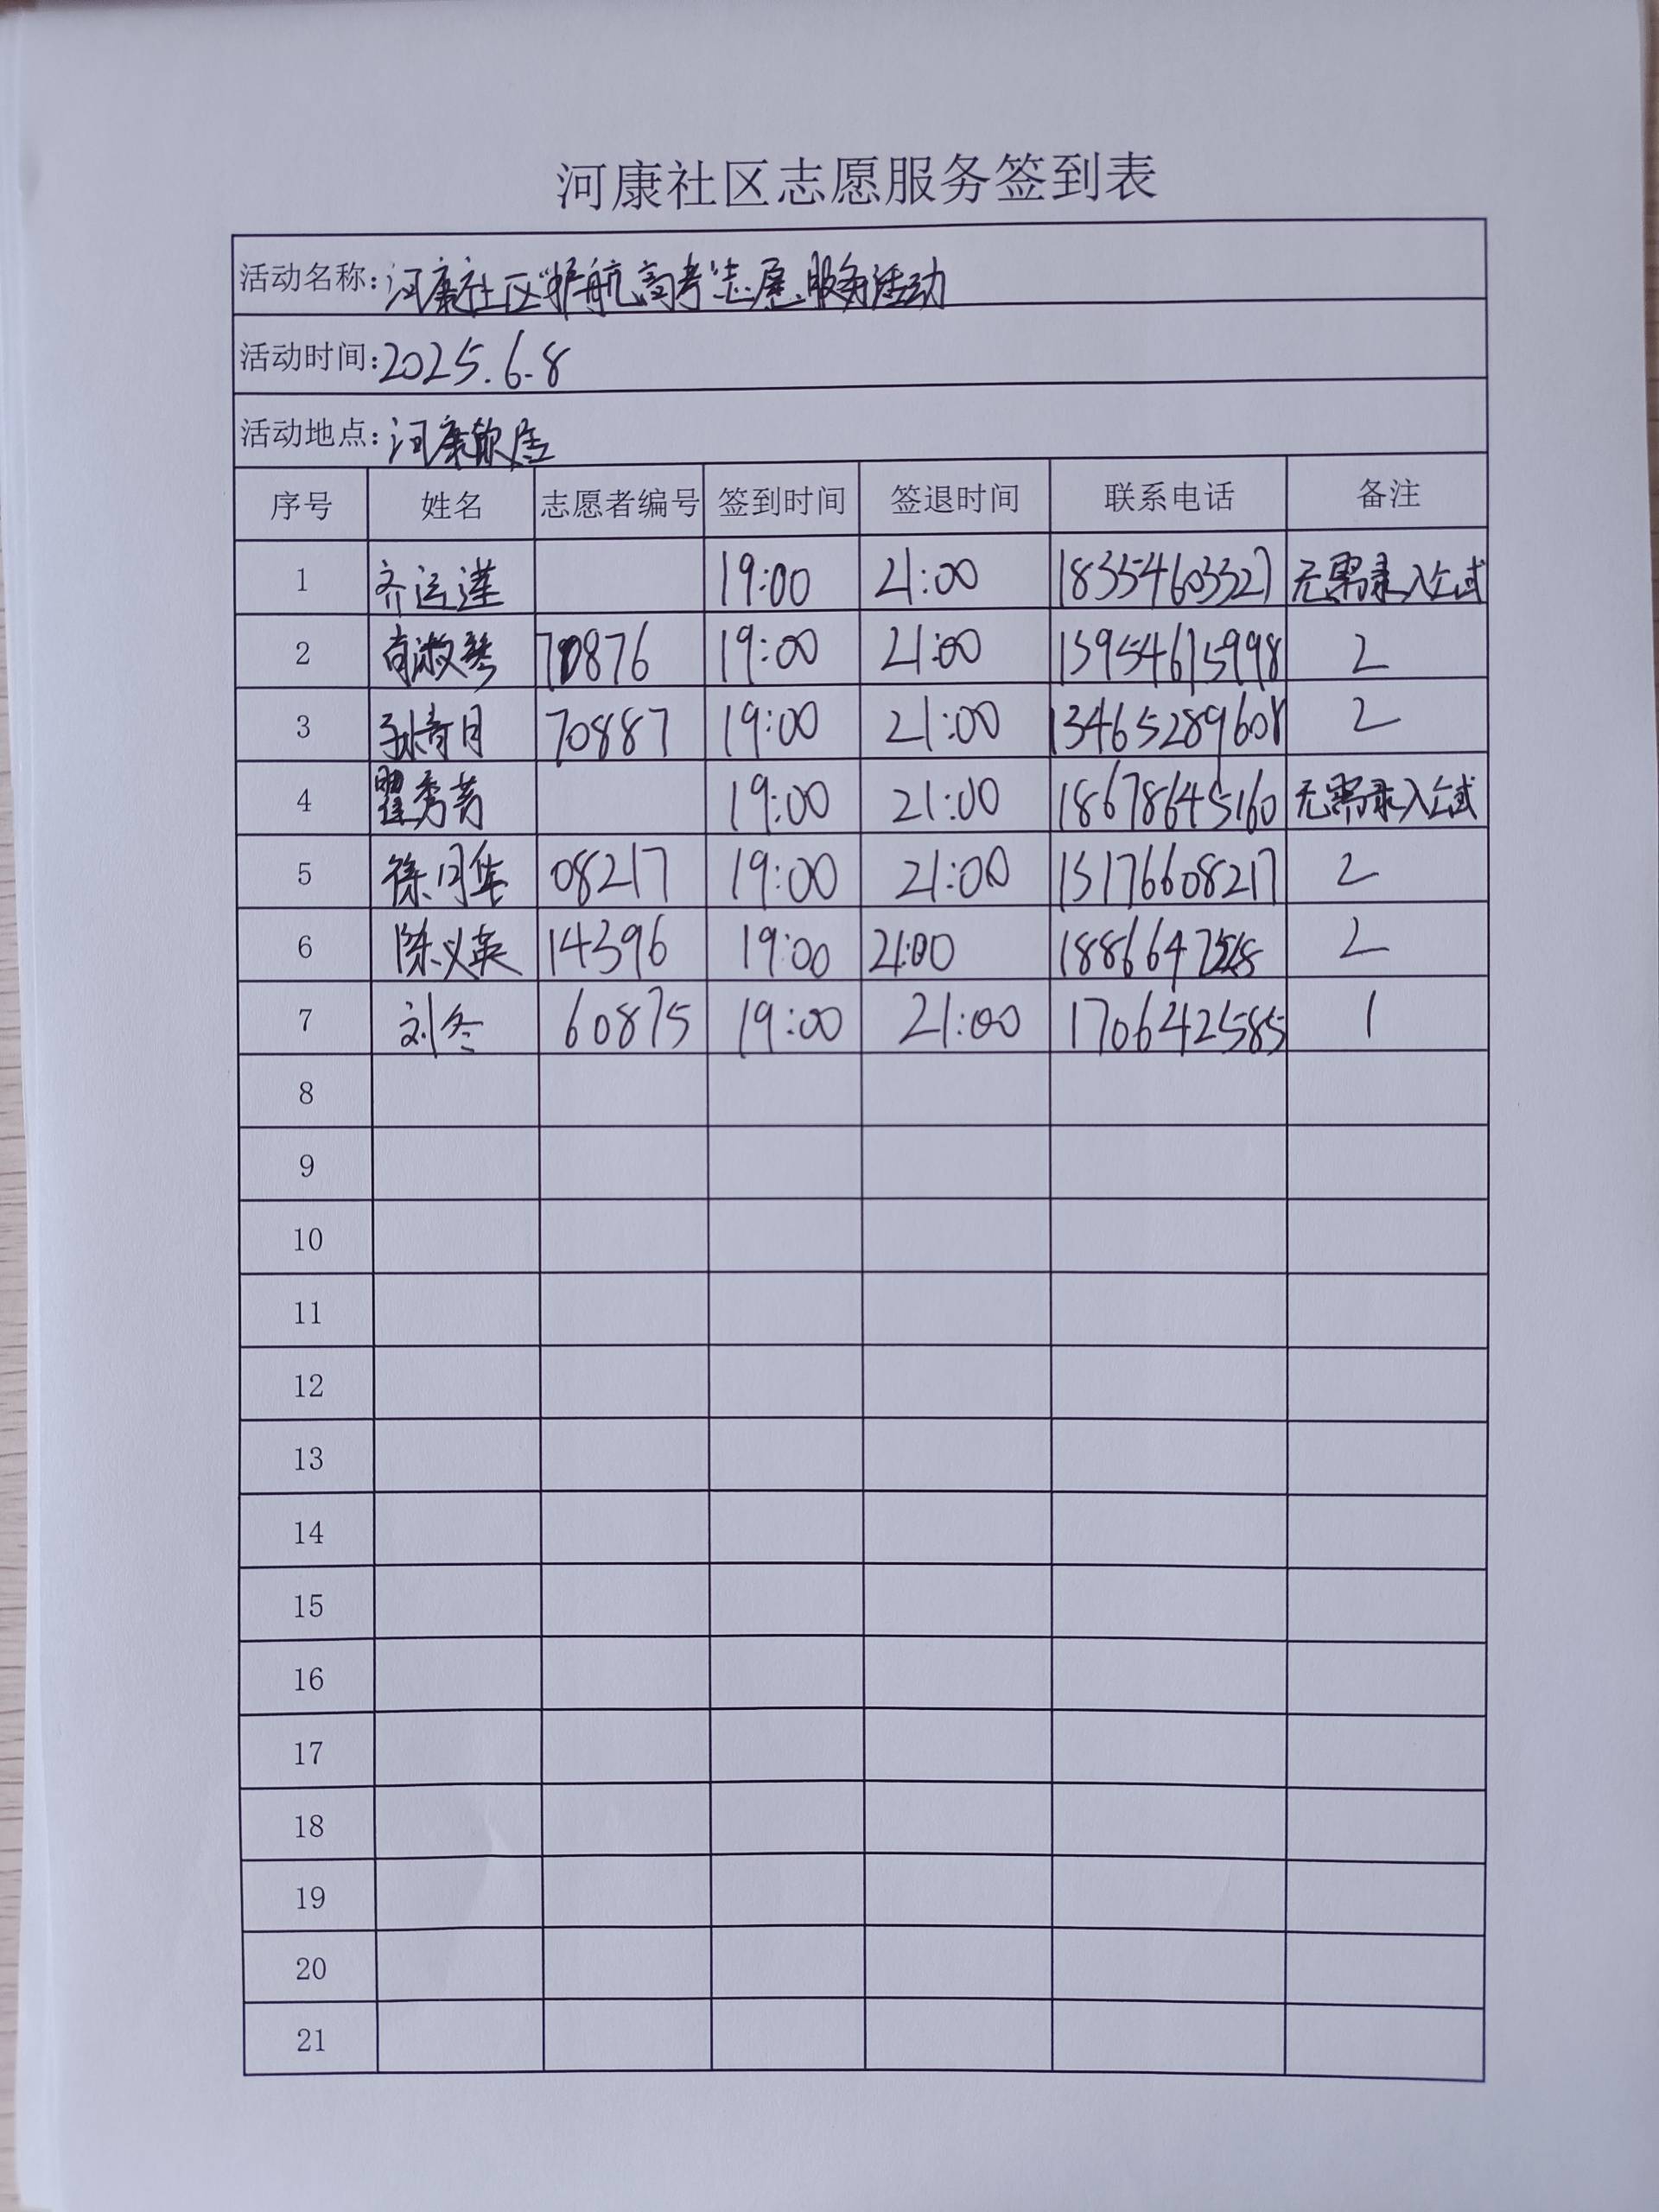 河康社区志愿服务签到表
活动名称:河康社区"护航高考"志愿服务活动
活动时间:2025.6.8
活动地点:河康欣居
序号 姓名 志愿者编号 签到时间 签退时间 联系电话 备注
1 齐运莲 19:00 21:00 18354603327 无需录入公式
2 淑琴 70876 19:00 21:00 15954615998 2
3 孙青月 70887 19:00 21:00 13465289608 2
4 翟秀芳 19:00 21:00 18678645160 无需录入公式
5 徐月华 08217 19:00 21:00 15176608217 2
6 陈义英 14396 19:00 21:00 2
7 刘冬 60875 19:00 21:00 1706642585 1
8
9
10
11
12
13
14
15
16
17
18
19
20
21